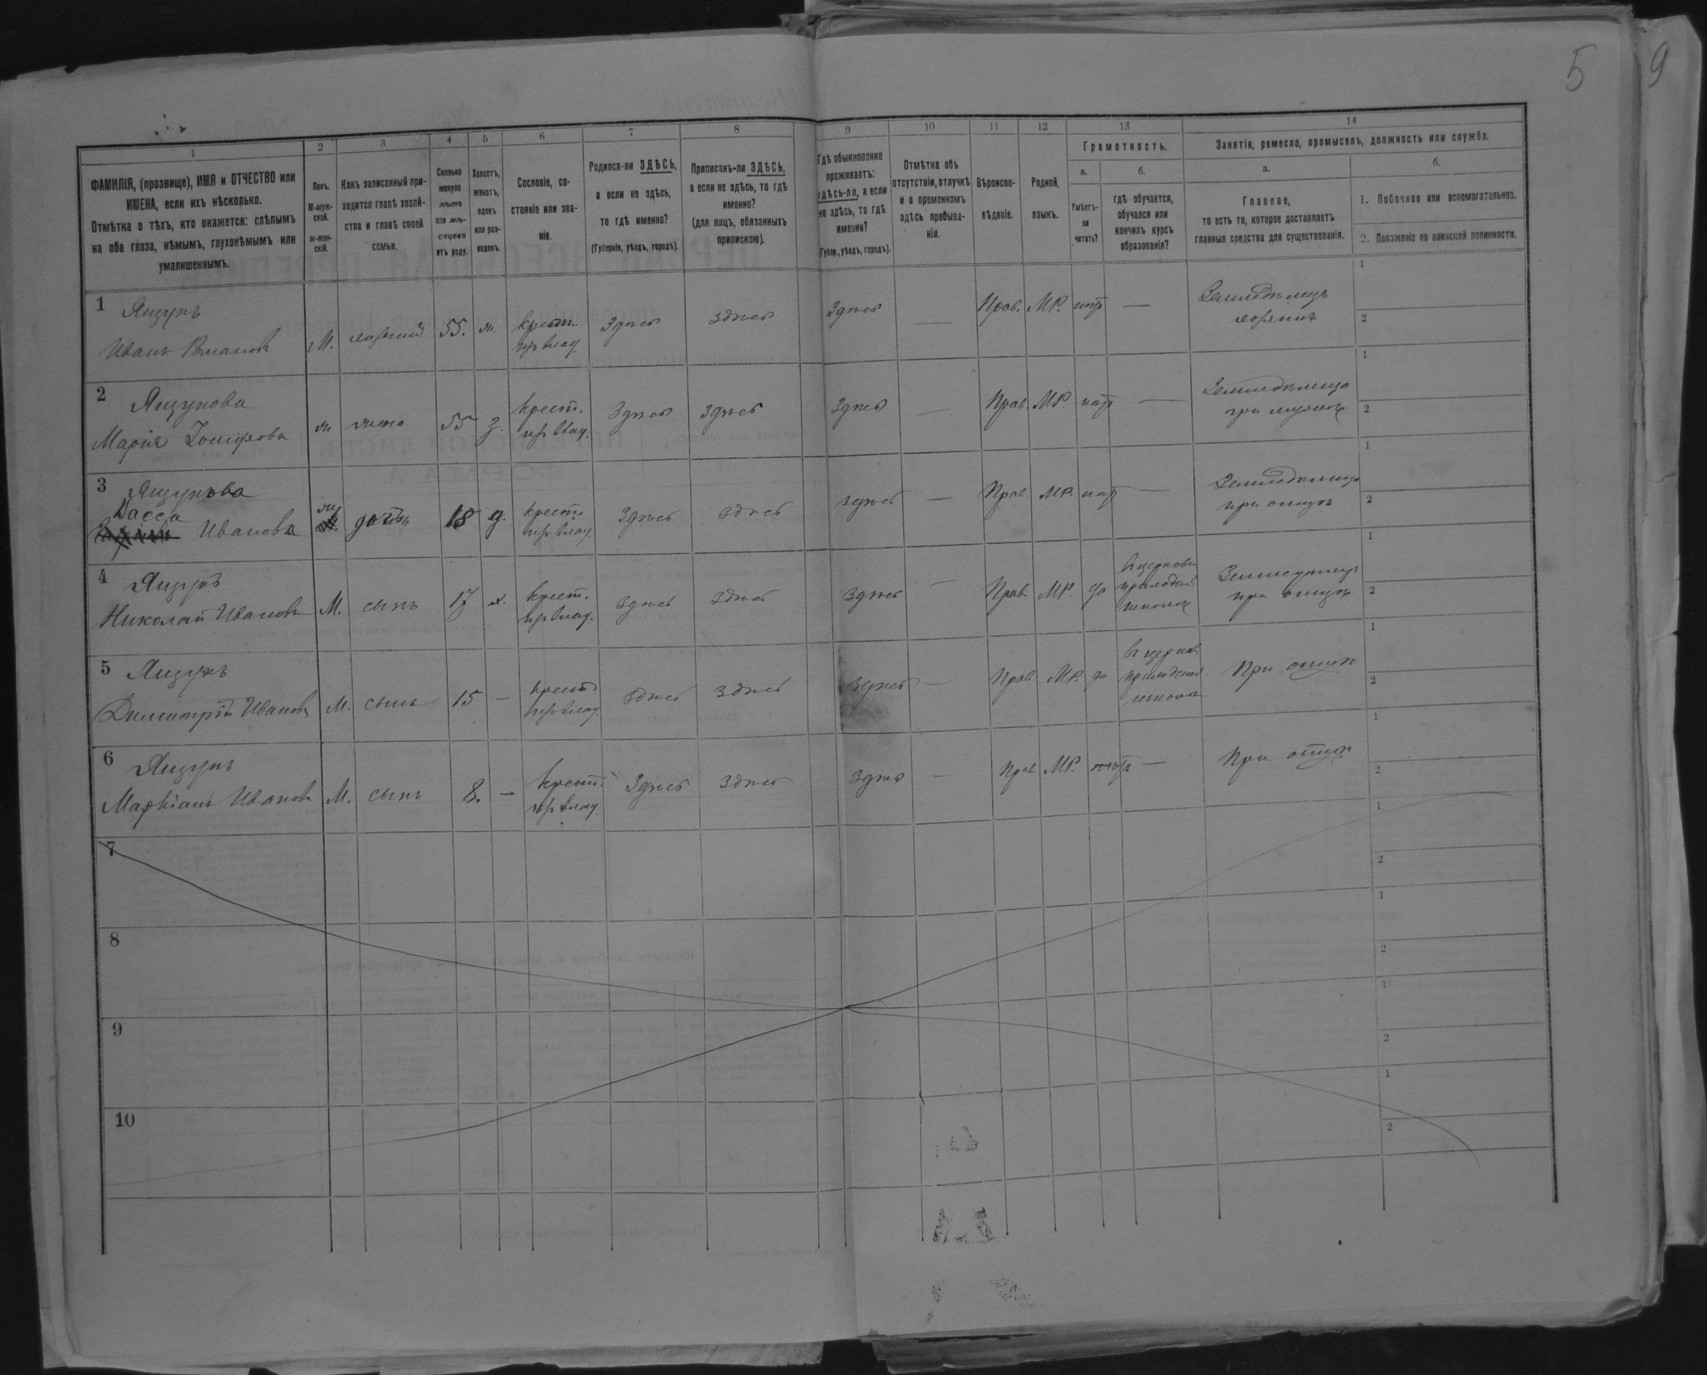 5 9
1 2 3 4 5 6 7 8 9 10 11 12 13 14
ФАМИЛІЯ, (прозвище), ИМЯ и ОТЧЕСТВО или
ИМЕНА, если ихъ нѣсколько.
Отмѣтка о тѣхъ, кто окажется: слѣпымъ
на оба глаза, нѣмымъ, глухонѣмымъ или
умалишеннымъ.
Полъ.
М-муж-
ской.
Ж-жен-
скій.
Какъ записанный при-
ходится главѣ хозяй-
ства и главѣ своей
семьи.
Сколько
минуло
лѣтъ
или мѣ-
сяцевъ
отъ роду.
Холостъ,
женатъ,
вдовъ
или раз-
веденъ.
Сословіе, со-
стояніе или зва-
ніе.
Родился-ли ЗДѢСЬ,
а если не здѣсь,
то гдѣ именно?
(Губернія, уѣздъ, городъ).
Приписанъ-ли ЗДѢСЬ,
а если не здѣсь, то гдѣ
именно?
(для лицъ, обязанныхъ
припискою).
Гдѣ обыкновенно
проживаетъ:
здѣсь-ли, а если
не здѣсь, то гдѣ
именно?
(Губер., уѣздъ, городъ).
Отмѣтка объ
отсутствіи, отлучкѣ
и о временномъ
здѣсь пребыва-
ніи.
Вѣроиспо-
вѣданіе.
Родной
языкъ.
Грамотность.
а.
Умѣетъ-
ли
читать?
б.
гдѣ обучается,
обучался или
кончилъ курсъ
образованія?
Занятіе, ремесло, промыселъ, должность или служба.
а.
Главное,
то есть то, которое доставляетъ
главныя средства для существованія.
б.
1. Побочное или вспомогательное.
2. Положеніе по воинской повинности.
1 Яцунъ
Иванъ М. 55. крест. Здѣсь здѣсь Здѣсь — Прав. МР. нѣтъ — Земледѣлецъ
хозяинъ
1
2
2 Яцунова
Марія жена 55 з. крест. Здѣсь здѣсь Здѣсь — Прав. МР. нѣтъ — Земледѣлица
при мужѣ
1
2
3 Яцунова
Васса
Иванова дочь 18 д. крест. Здѣсь здѣсь здѣсь — Прав. МР. нѣтъ — Земледѣлица
при отцѣ
1
2
4 Яцунъ
Николай Ивановъ М. сынъ 17 х. крест. здѣсь здѣсь здѣсь — Прав. МР. да
въ церковно
приходской
школѣ
Земледѣлецъ
при отцѣ
1
2
5 Яцунъ
Димитрій Ивановъ М. сынъ 15 — крест. здѣсь здѣсь здѣсь — Прав. МР. да
въ церков.
приходской
школѣ
При отцѣ
1
2
6 Яцунъ
Маркіанъ Ивановъ М. сынъ 8. — крест. Здѣсь здѣсь здѣсь — Прав. МР. нѣтъ — При отцѣ
1
2
7
1
2
8
1
2
9
1
2
10
1
2